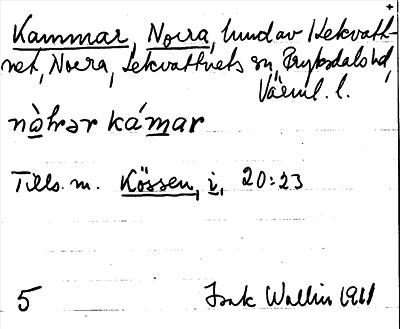 Kammar, Norra, hund av Lekvatt-
net, Norra, Lekvattnets sn, Fryksdals hd,
Värml. l.
nàhrər kámar
Tills. m. Kössen, i, 20:23
5 Wallin 1911